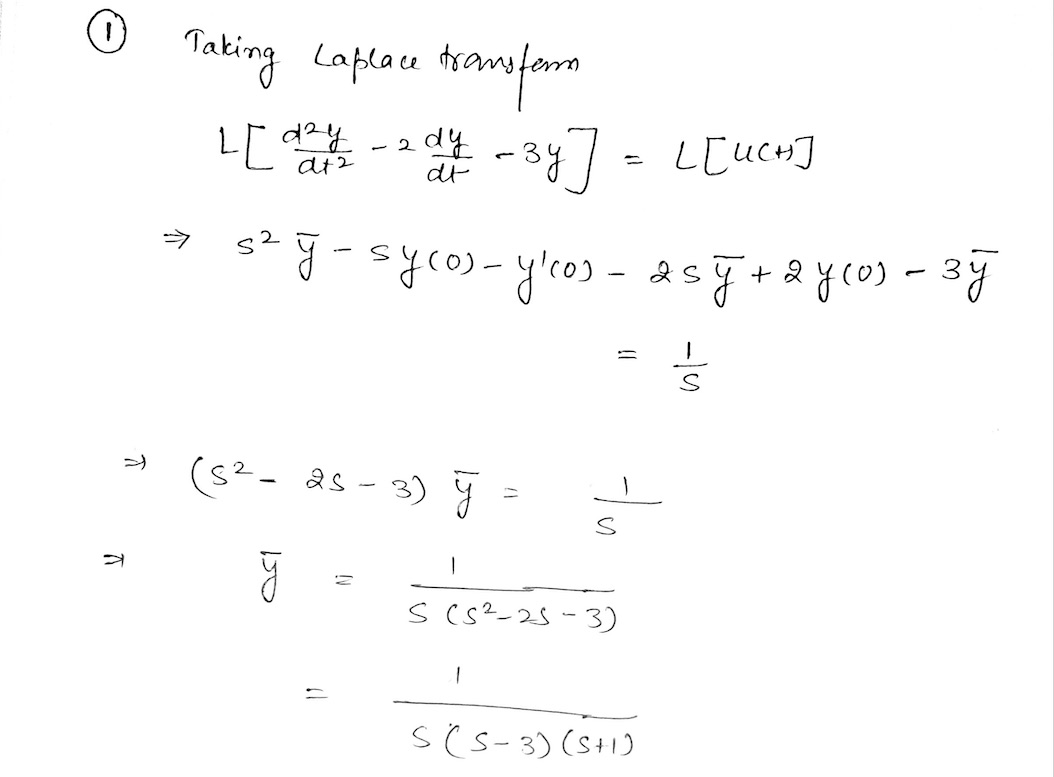 ① Taking Laplace transform
L[d²y/dt² - 2 dy/dt - 3y] = L[u(t)]
⇒ s² ȳ - s y(0) - y'(0) - 2s ȳ + 2 y(0) - 3ȳ
= 1/s
⇒ (s² - 2s - 3) ȳ = 1/s
⇒ ȳ = 1/(s (s² - 2s - 3))
= 1/(s (s - 3) (s + 1))